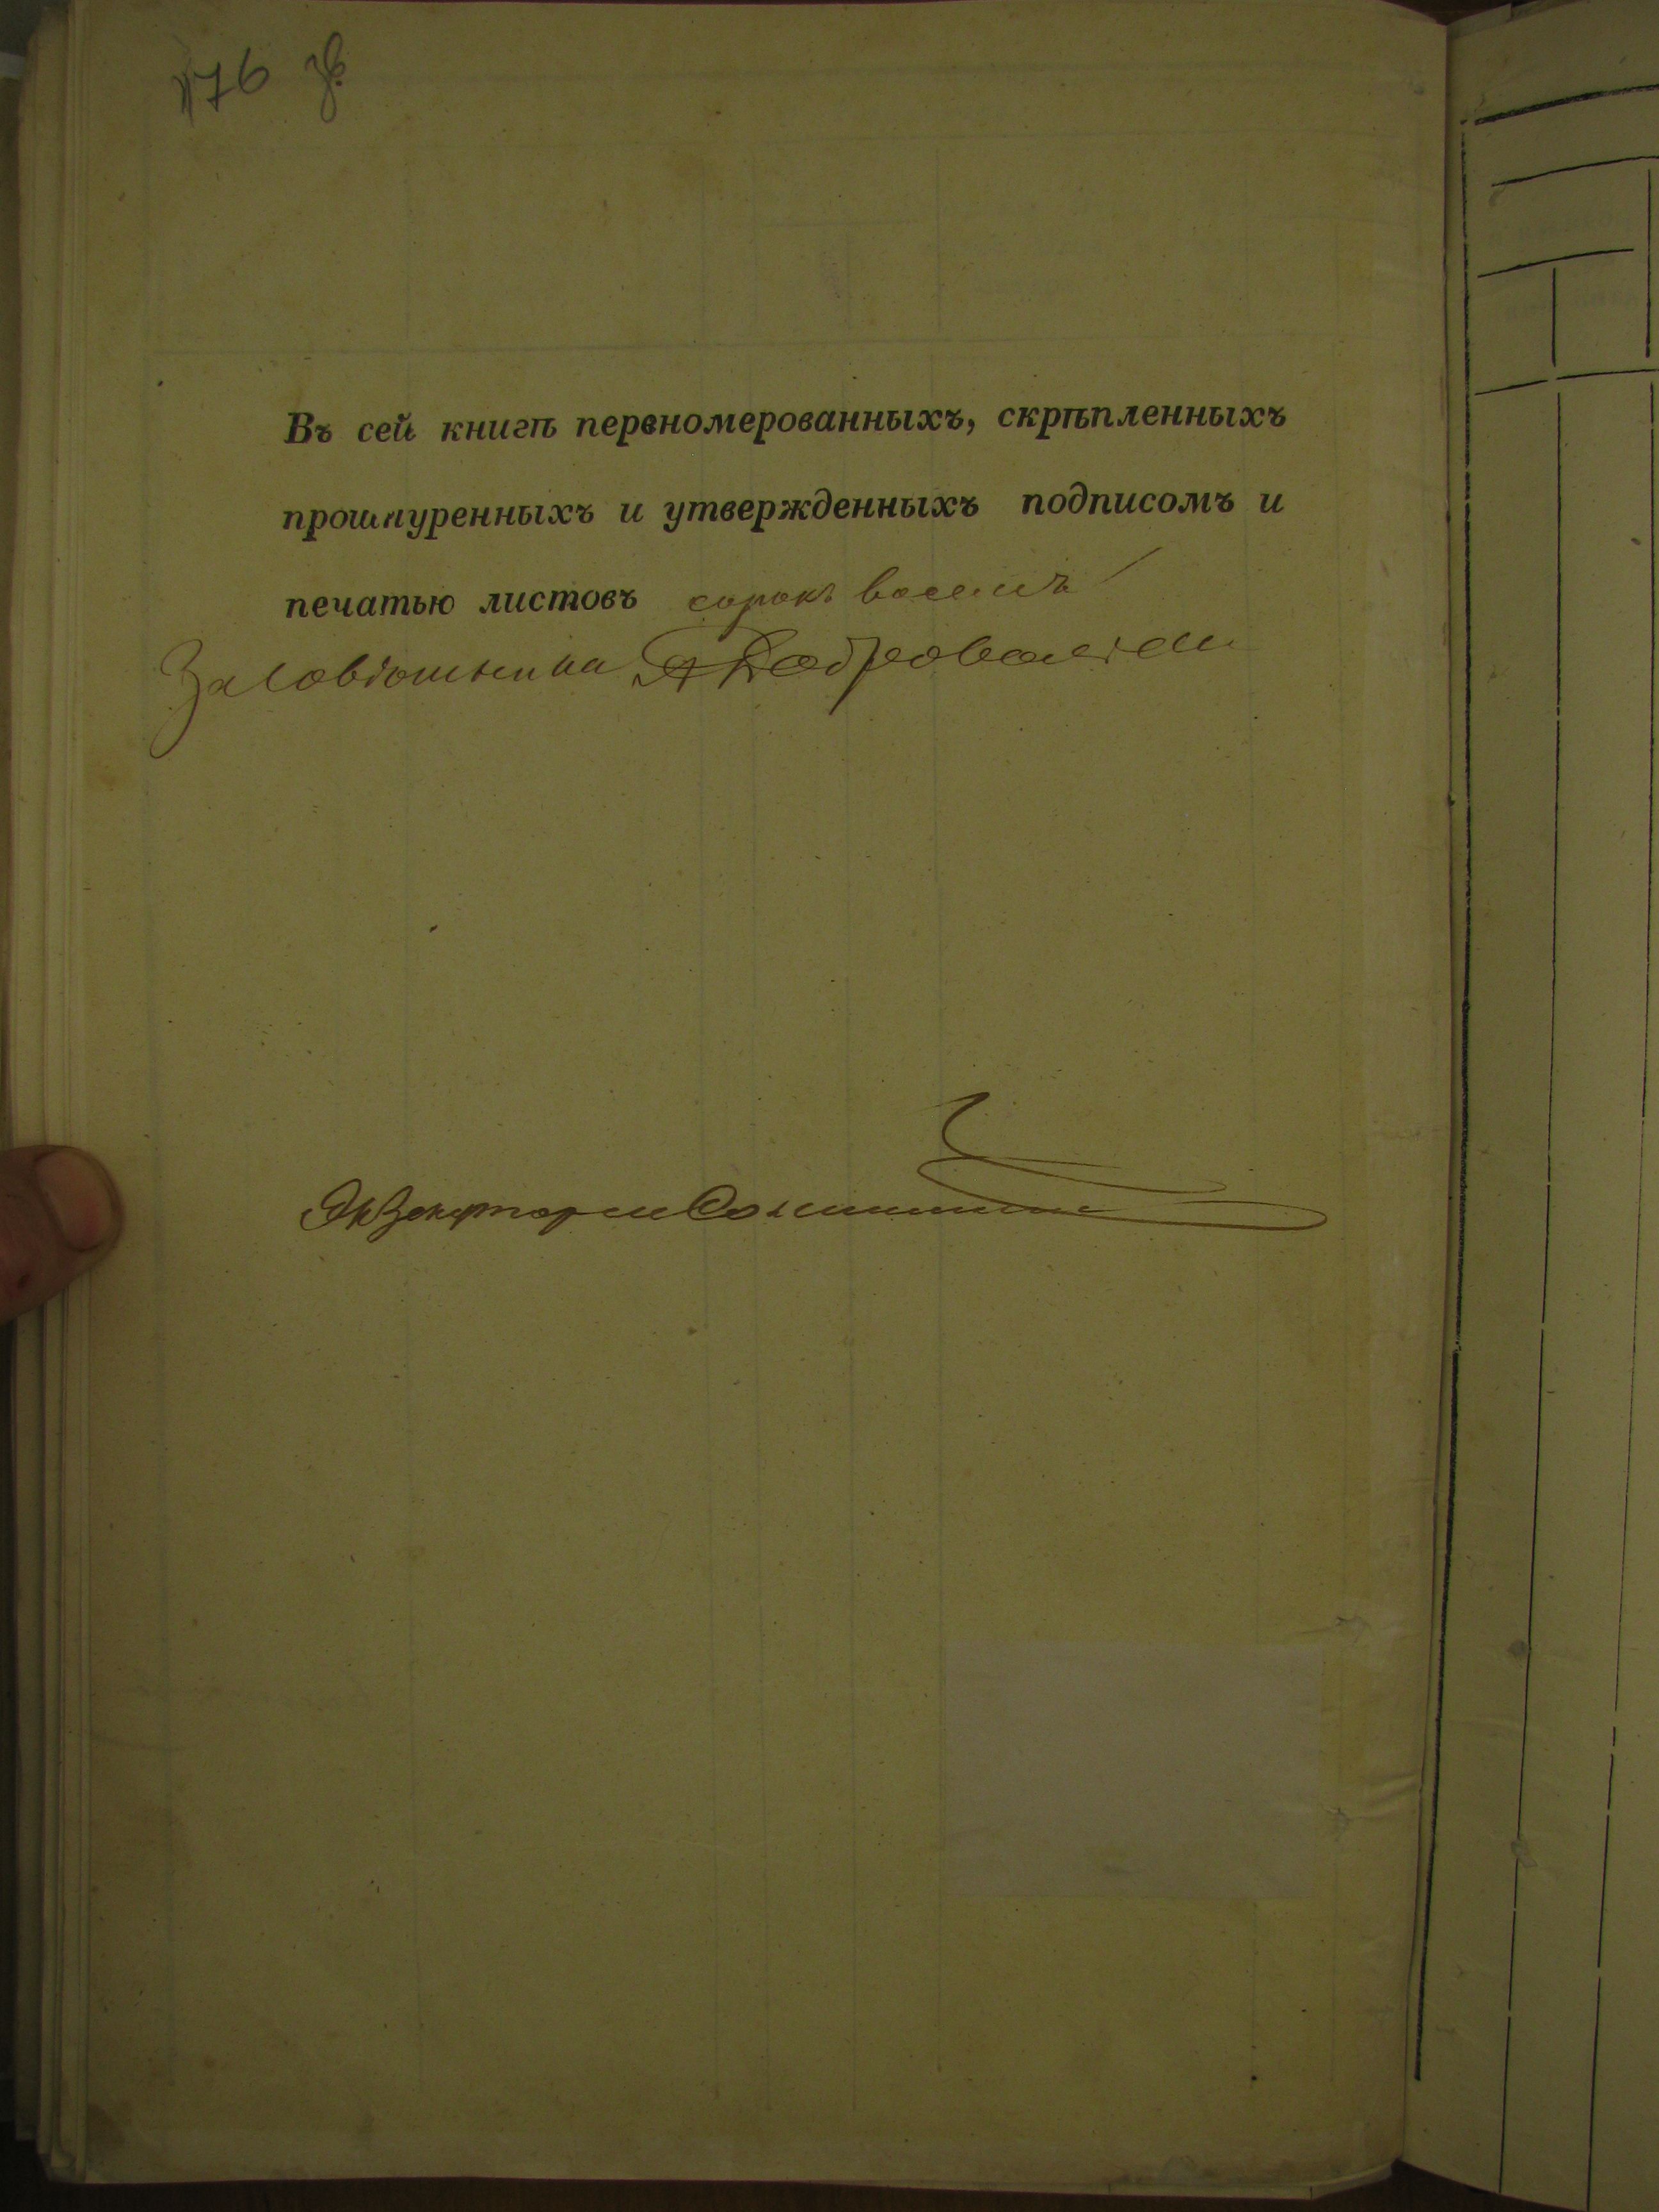 176 зв.
Въ сей книгѣ перенномерованныхъ, скрѣпленныхъ
прошнуренныхъ и утвержденныхъ подписомъ и
печатью листовъ сорокъ восемь
За Совѣтника
Экзекуторъ